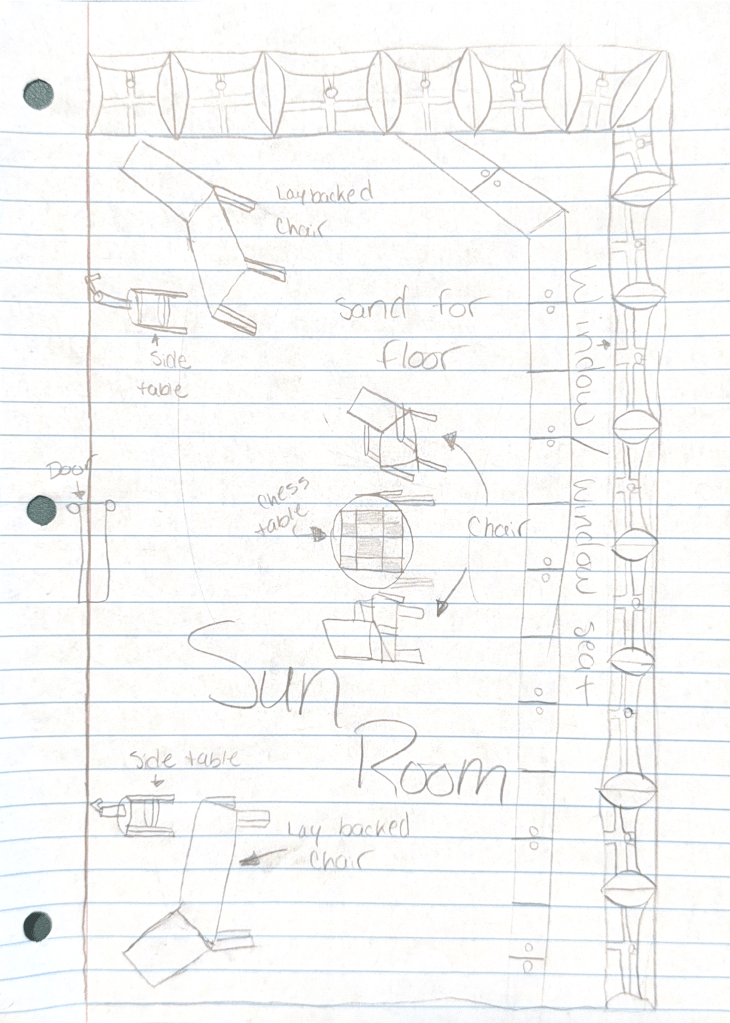 Lay backed
Chair
Sand for
floor
Side
table
Window / Window Seat
Door
Chess
table
Chair
Sun
Room
Side table
Lay backed
Chair